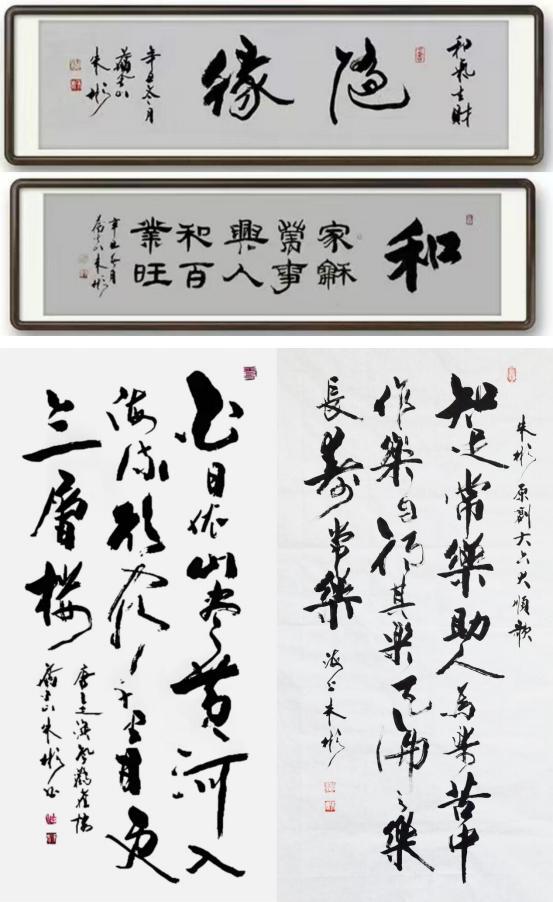 和氣生財
隨緣
辛丑冬月
朱彬
和
家龢
萬事
興人
和百
業旺
辛丑冬月
朱彬
白日依山盡黃河入
海流欲窮千里目更
上一層樓
唐王之渙登鸛雀樓
朱彬書
朱彬原創六六大順歌
知足常樂助人為樂苦中
作樂自得其樂天倫之樂
長壽常樂
海上朱彬